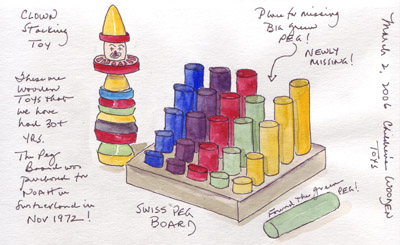 CLOWN
Stacking
TOY
These are
Wooden
TOYS that
we have
had 30+
yrs.
The Peg
Board was
purchased for
Noah in
Switzerland in
Nov 1972!
Place for missing
Big green
PEG!
NEWLY
MISSING!
SWISS PEG
BOARD
Found the green
PEG!
March 2, 2006 Children's WOODEN
TOYS